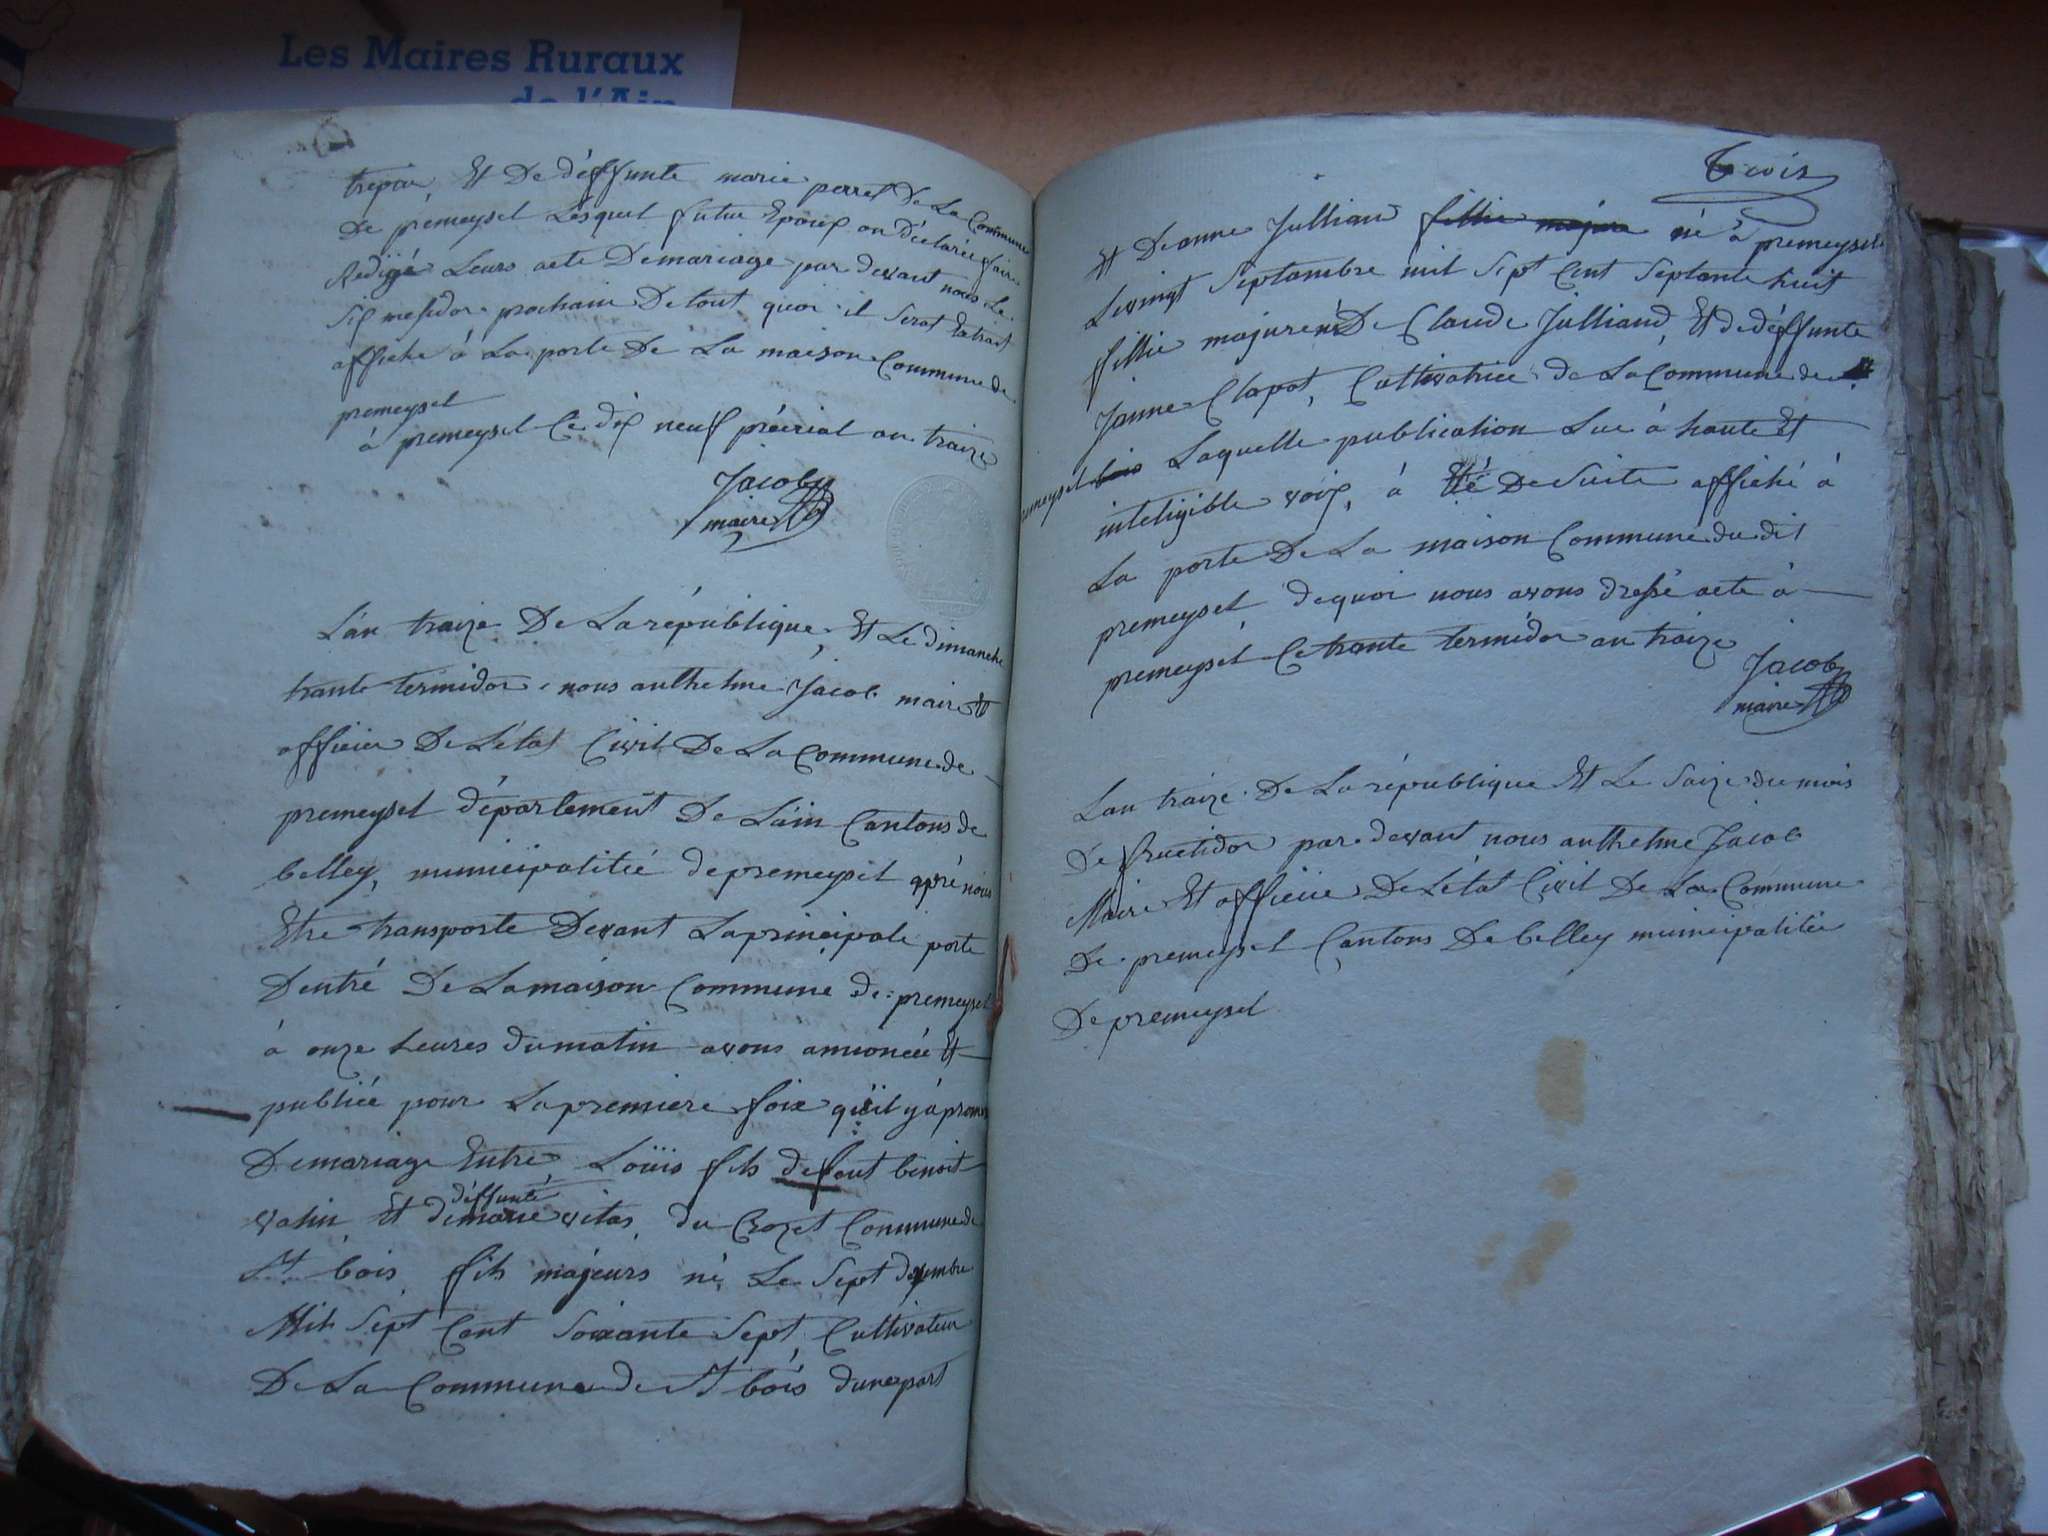 Les Maires Ruraux
de l'Ain
trepou Et De déffunte marie perret De La Commune
De prémeysel Lesquel futur Epouss on déclarée faire
Rédigé Leurs acte Demariage par devant nous Le
Six mesidor prochain De tout quoi il Serat Extrait
affiché à La porte De La maison Commune de
premeysel
à premeysel Ce dix neuf préirial an traize
Jacob
maire
L'an traize De La république, Et Le dimanche
trante termidor, nous anthelme Jacob maire Et
officier De L'état Civil De La Commune de
premeysel département De L'ain Cantons de
belley, municipalitié de premeysel apré nous
Etre transporte Devant La principale porte
Dentré De La maison Commune de premeysel
à onze heures du matin avons annoncéé Et
publiée pour La premiere foix qu'il y à promes
Demariage Entre Loüis fils defont benoit
vatin Et de déffunte marie vitas du Crozet Commune de
St bois fils majeurs né Le Sept desembre
Mil Sept Cent Soixante Sept, Cultivateur
De La Commune de St bois dune part
Trois
Et Deanne Jullian fillie majure né à premeysel
Le vingt Septambre mil Sept Cent Septante huit
fillie majure De Claude Julliand, Et de déffunte
Janne Clapot, Cultivatrice de La Commune de
premeysel bois Laquelle publication Lue à haute Et
inteligible voix, à Eté De Suite affiché à
La porte De La maison Commune du dit
premeysel, dequoi nous avons dressé acte à
premeysel Ce trante termidor an traize
Jacob
maire
Lan traize De La république Et Le Saize du mois
De fructidor par devant nous anthelme Jacob
Maire Et officie De L'état Civil De La Commune
De premeysel Cantons De belley municipalitée
De premeysel